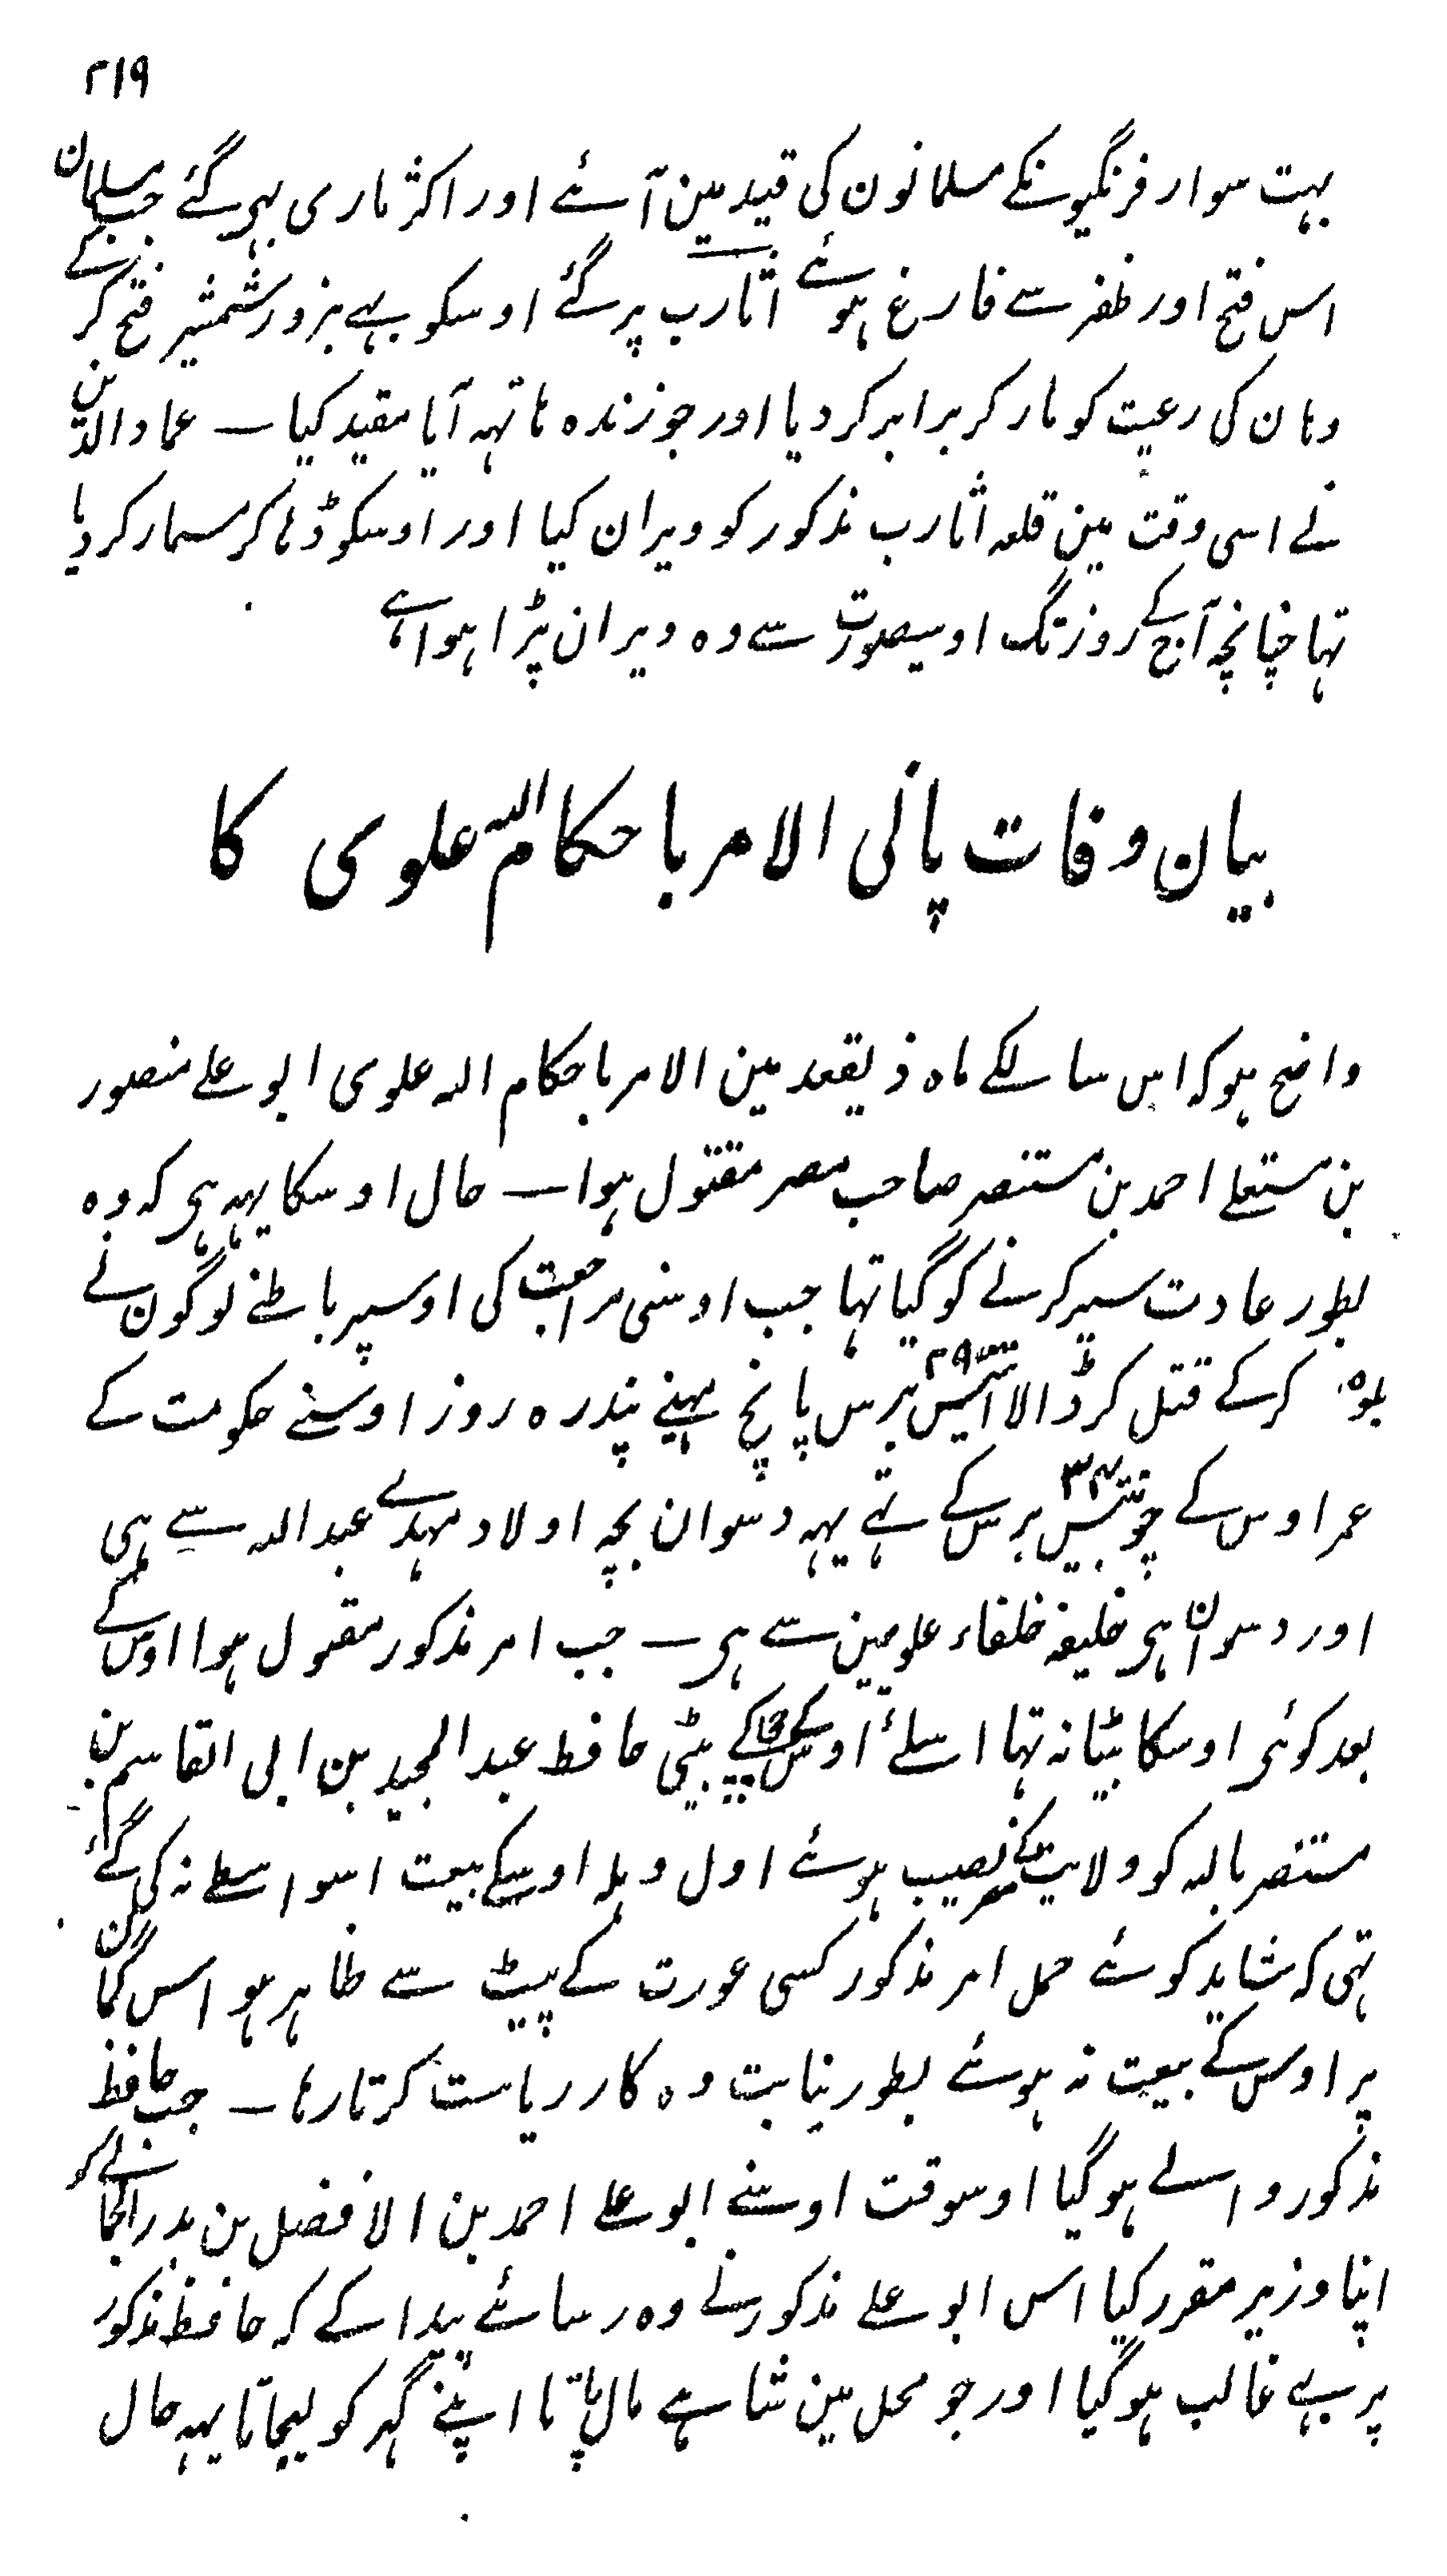 ۲۱۹
بہت سوار فرنگیونکے مسلمانون کی قید مین آئے اور اکثر ماری بہی گئے جب مسلمان
اس فتح اور ظفر سے فارغ ہوئے اثارب پر گئے اوسکو بہے بزور شمشیر فتح کر کے
وہان کی رعیت کو مار کر برابر کر دیا اور جو زندہ ہاتہہ آیا مقید کیا ـ عماد الدین
نے اسی وقت مین قلعہ اثارب مذکور کو ویران کیا اور اوسکو ڈہا کر مسمار کر دیا
تہا چنانچہ آج کے روز تگ اوسیصورت سے وہ ویران پڑا ہوا ہے
بیان وفات پانی الامر باحکام اللہ علوی کا
واضح ہو کہ اس سالکے ماہ ذیقعد مین الامر باحکام اللہ علوی ابو علے منصور
بن مستعلے احمد بن مستنصر صاحب مصر مقتول ہوا ـ حال اوسکا یہہ ہی کہ وہ
بطور عادت سیر کرنے کو گیا تہا جب اوسنی مراجعت کی اوسپر باطنے لوگون نے
بلوہ کرکے قتل کر ڈالا انتیس ۲۹ برس پانچ مہینے پندرہ روز اوسنے حکومت کے
عمر اوس کے چونتیس ۳۴ برس کے تہے یہہ دسوان بچہ اولاد مہدے عبد اللہ سے ہی
اور دسوان ہی خلیفہ خلفاء علومین سے ہی ـ جب امر مذکور مقتول ہوا اوس کے
بعد کوئی اوسکا بیٹا نہ تہا اسلئے اوس کے چچا کے بیٹی حافظ عبد المجید بن ابی القاسم بن
مستنصر باللہ کو ولایت مصر کے نصیب ہوئے اول وہلہ اوسکے بیعت اسواسطے نہ کی گئے
تہی کہ شاید کوئے حمل امر مذکور کسی عورت کے پیٹ سے ظاہر ہو اس گمان
پر اوس کے بیعت نہ ہوئے بطور نیابت وہ کار ریاست کرتا رہا ـ جب حافظ
مذکور والے ہو گیا اوسوقت اوسنے ابو علے احمد بن الافضل بن بدر الجمالے کو
اپنا وزیر مقرر کیا اس ابو علے مذکور نے وہ رسائے پیدا کے کہ حافظ مذکور
پر بہے غالب ہو گیا اور جو محل مین شاہے مال پاتا تا اپنے گہر کو لیجاتا یہہ حال